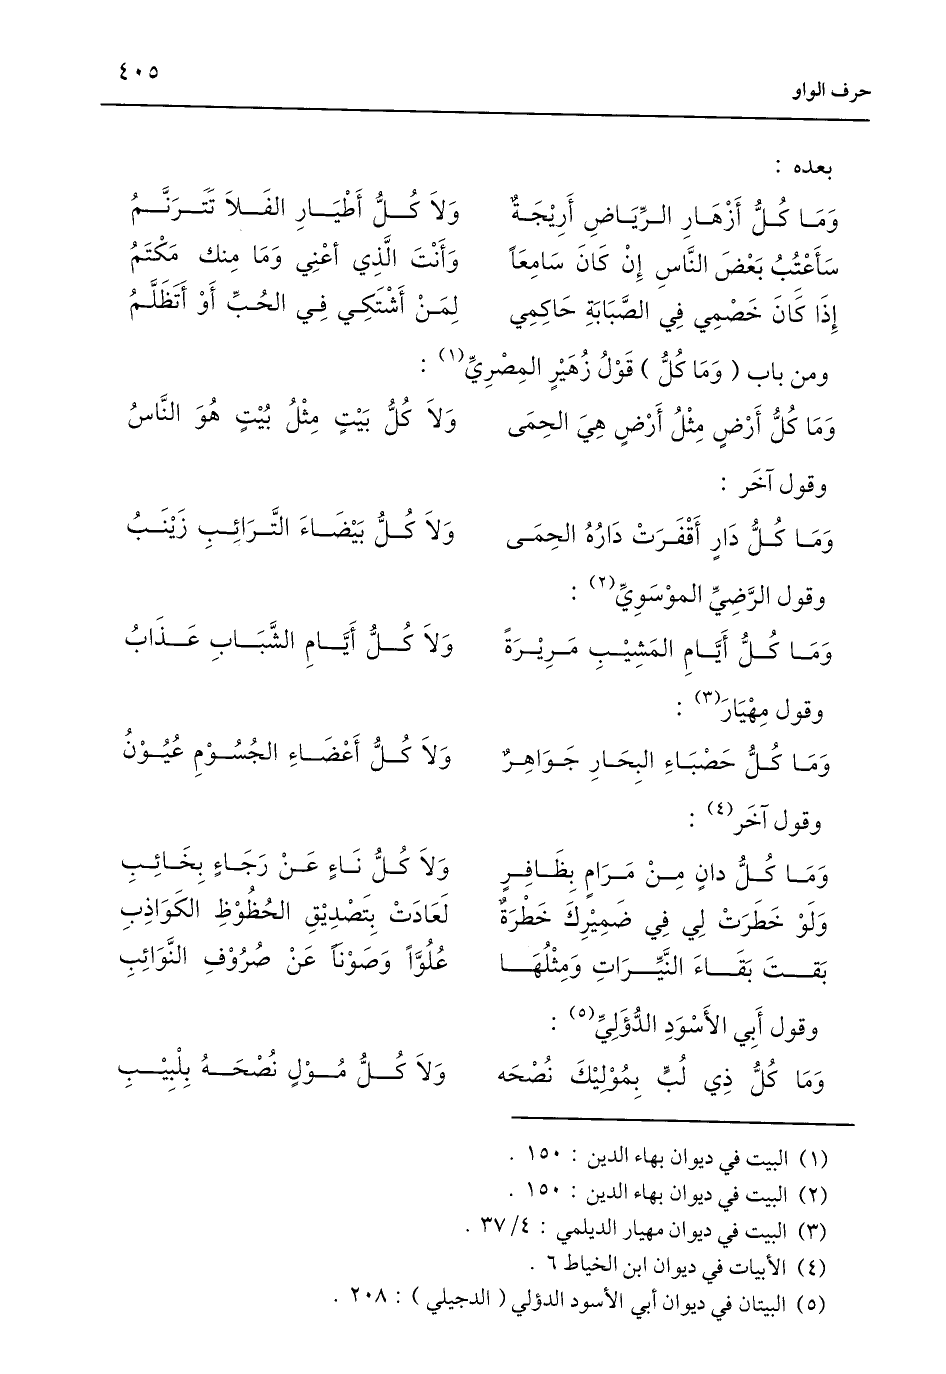 حرف الواو ٤٠٥
بعده :
وَمَا كُلُّ أَزْهَارِ الرِّيَاضِ أَرِيْجَةٌ وَلاَ كُلُّ أَطْيَارِ الفَلاَ تَتَرَنَّمُ
سَأَعْتُبُ بَعْضَ النَّاسِ إِنْ كَانَ سَامِعَاً وَأَنْتَ الَّذِي أَعْنِي وَمَا مِنك مَكْتَمُ
إِذَا كَانَ خَصْمِي فِي الصَّبَابَةِ حَاكِمِي لِمَنْ أَشْتَكِي فِي الحُبِّ أَوْ أَتَظَلَّمُ
ومن باب ( وَمَا كُلُّ ) قَوْلُ زُهَيْرٍ المِصْرِيِّ(١) :
وَمَا كُلُّ أَرْضٍ مِثْلُ أَرْضٍ هِيَ الحِمَى وَلاَ كُلُّ بَيْتٍ مِثْلُ بُيْتٍ هُوَ النَّاسُ
وقول آخَر :
وَمَا كُلُّ دَارٍ أَقْفَرَتْ دَارُهُ الحِمَى وَلاَ كُلُّ بَيْضَاءَ التَّرَائِبِ زَيْنَبُ
وقول الرَّضِيِّ الموْسَوِيِّ(٢) :
وَمَا كُلُّ أَيَّامِ المَشِيْبِ مَرِيْرَةً وَلاَ كُلُّ أَيَّامِ الشَّبَابِ عَذَابُ
وقول مِهْيَارَ(٣) :
وَمَا كُلُّ حَصْبَاءِ البِحَارِ جَوَاهِرٌ وَلاَ كُلُّ أَعْضَاءِ الجُسُوْمِ عُيُوْنُ
وقول آخَر(٤) :
وَمَا كُلُّ دانٍ مِنْ مَرَامٍ بِظَافِرٍ وَلاَ كُلُّ نَاءٍ عَنْ رَجَاءٍ بِخَائِبِ
وَلَوْ خَطَرَتْ لِي فِي ضَمِيْرِكَ خَطْرَةٌ لَعَادَتْ بِتَصْدِيْقِ الحُظُوْظِ الكَوَاذِبِ
بَقَتَ بَقَاءَ النَّيِّرَاتِ وَمِثْلُهَا عُلُوَّاً وَصَوْنَاً عَنْ صُرُوْفِ النَّوَائِبِ
وقول أَبِي الأَسْوَدِ الدُّؤَلِيِّ(٥) :
وَمَا كُلُّ ذِي لُبٍّ بِمُوْلِيْكَ نُصْحَه وَلاَ كُلُّ مُوْلٍ نُصْحَهُ بِلَبِيْبِ
(١) البيت في ديوان بهاء الدين : ١٥٠ .
(٢) البيت في ديوان بهاء الدين : ١٥٠ .
(٣) البيت في ديوان مهيار الديلمي : ٣٧/٤ .
(٤) الأبيات في ديوان ابن الخياط ٦ .
(٥) البيتان في ديوان أبي الأسود الدؤلي ( الدجيلي ) : ٢٠٨ .